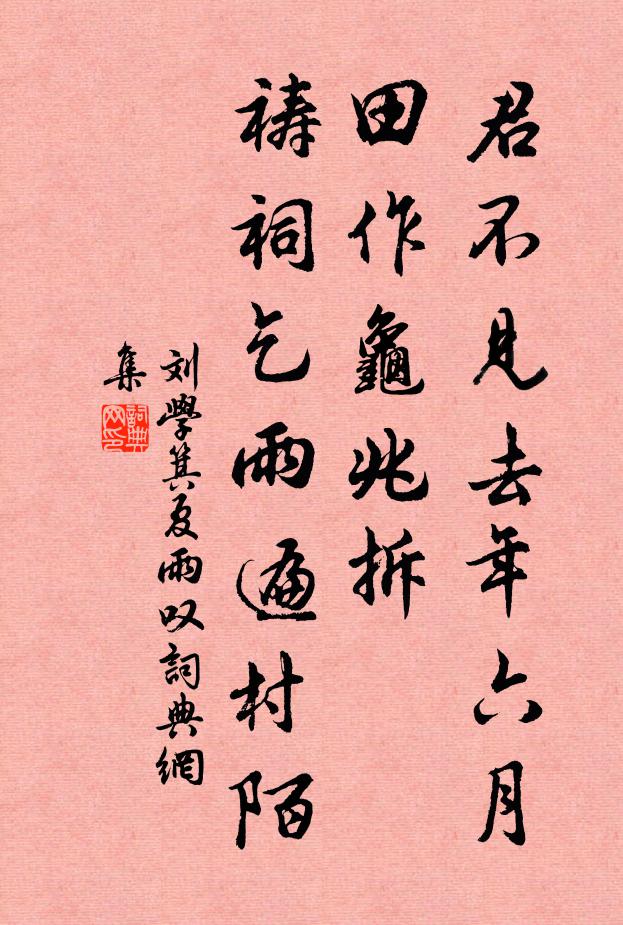 君不見去年六月
田作龜兆拆
祷祠乞雨遍村陌
刘學箕夏雨叹詞典網
集
詞典网印